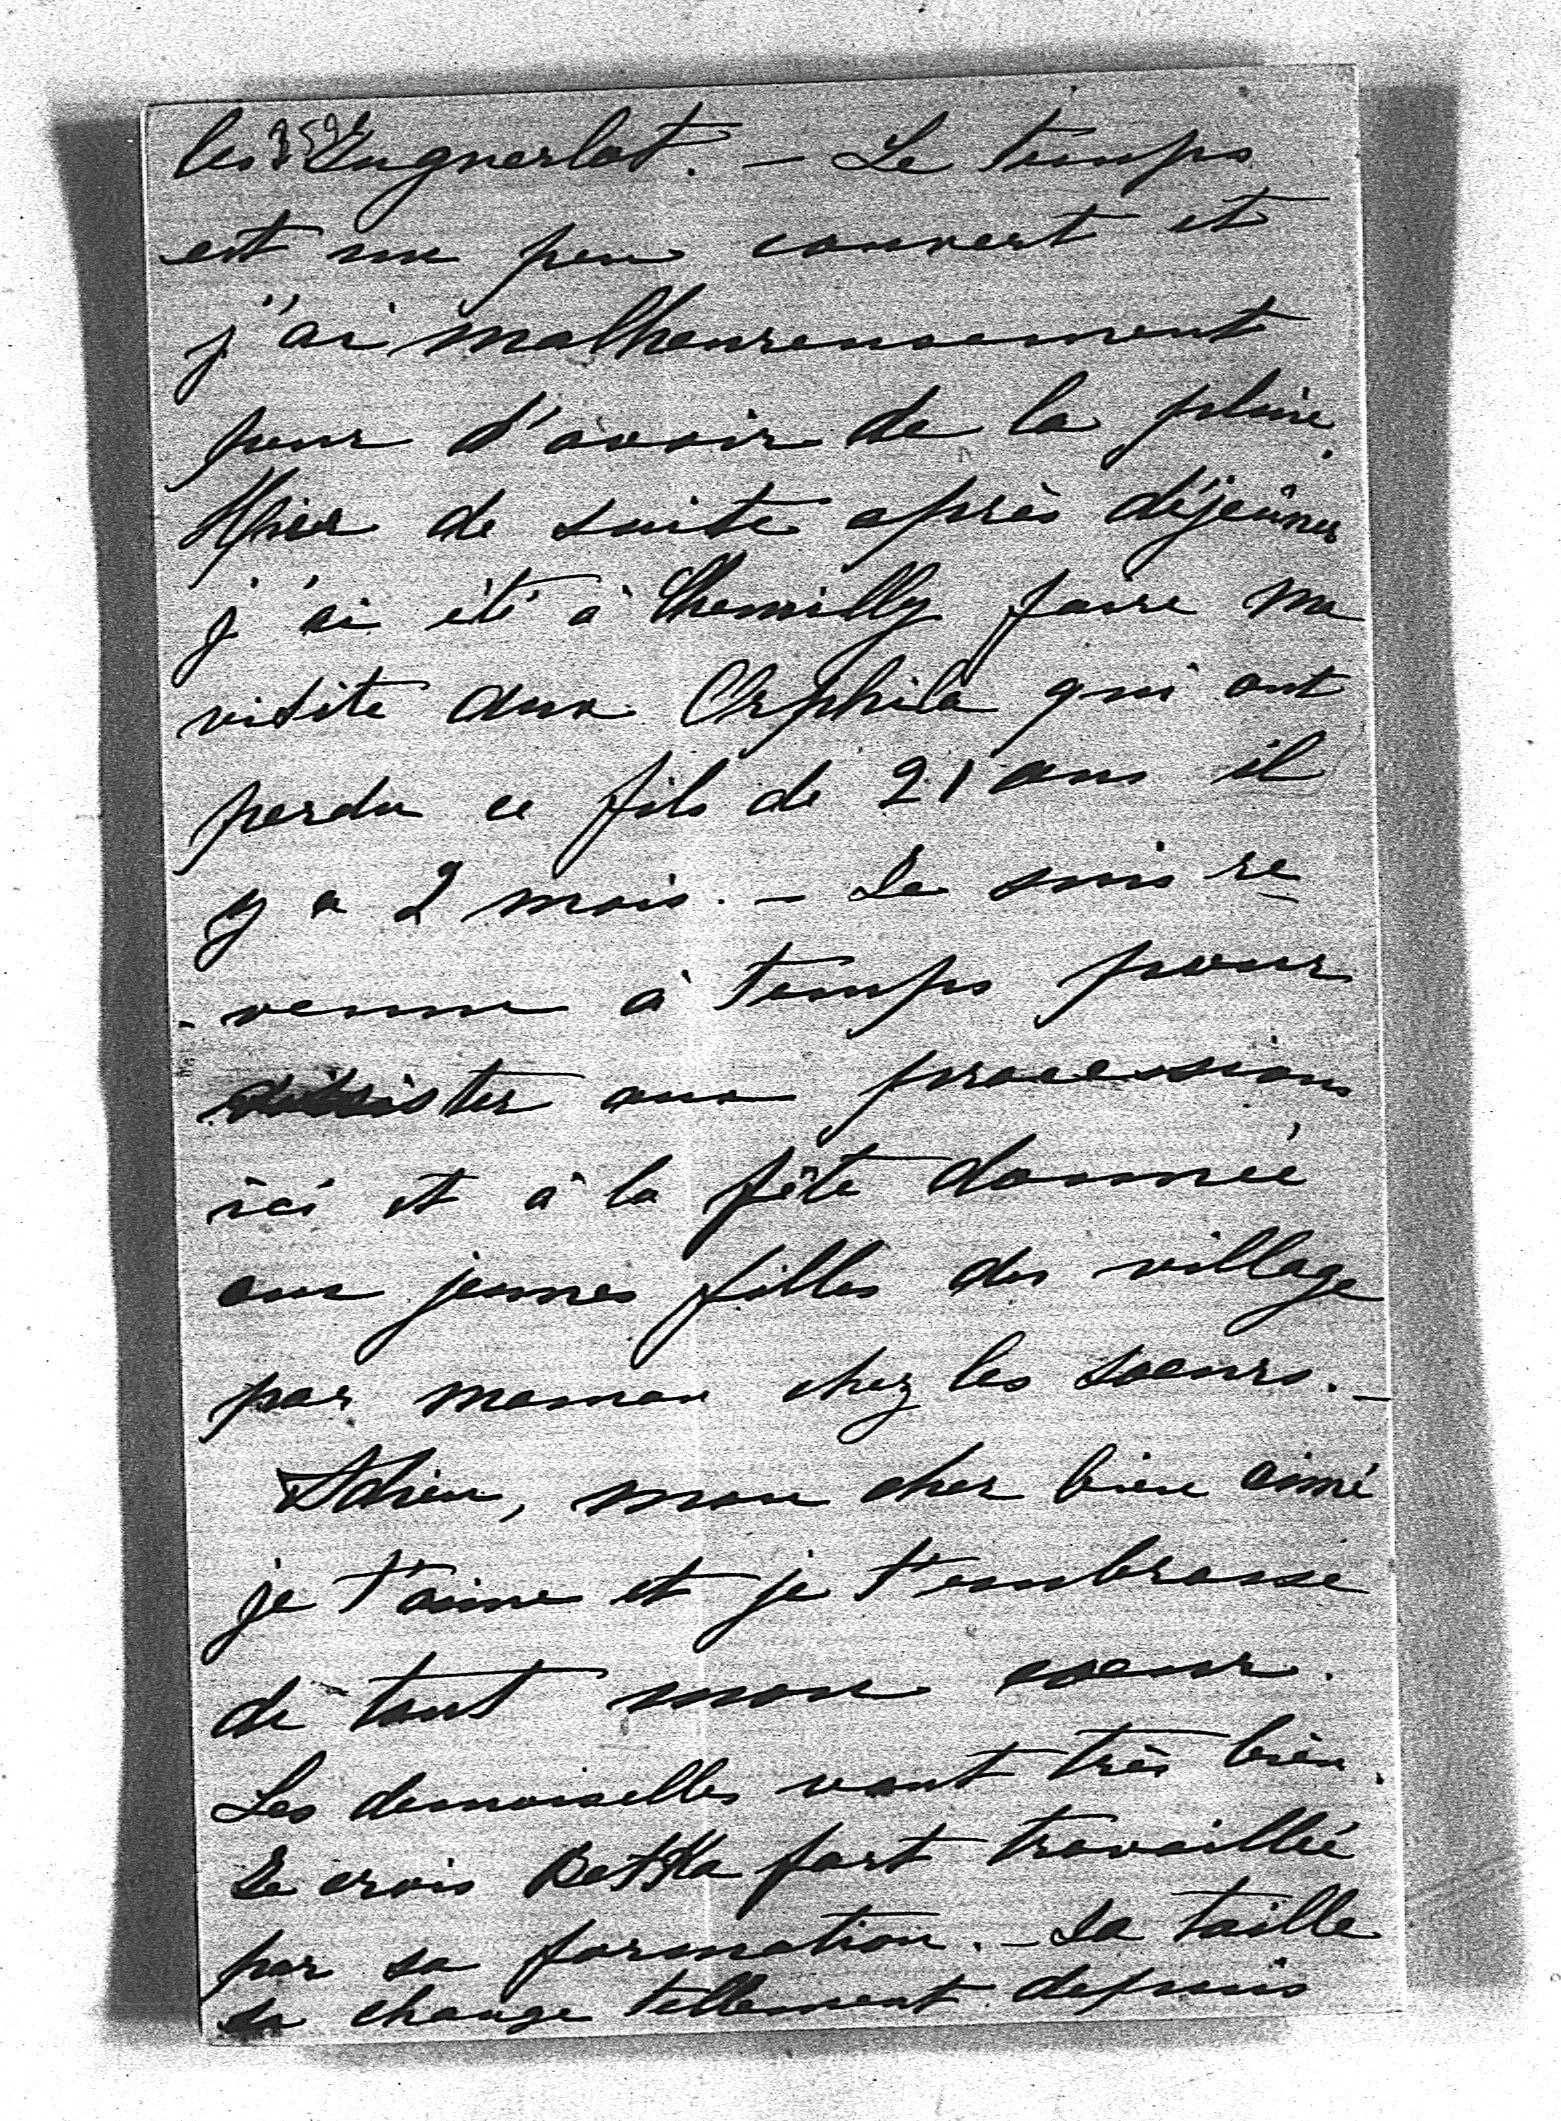 les Gugnerlot. – Le temps
est un peu couvert et
j'ai malheureusement
peur d'avoir de la pluie.
Hier de suite après déjeuner
j'ai été à Chemilly faire ma
visite aux Orphila qui ont
perdu ce fils de 21 ans il
y a 2 mois. – Je suis re
- venue à temps pour
assister aux processions
ici et à la fête donnée
aux jeunes filles du village
par maman chez les soeurs. –
Adieu, mon cher bien aimé
je t'aime et je t'embrasse
de tout mon coeur.
Les demoiselles vont très bien.
Je crois Bettka fort travaillée
par sa formation. – Sa taille
a changé tellement depuis